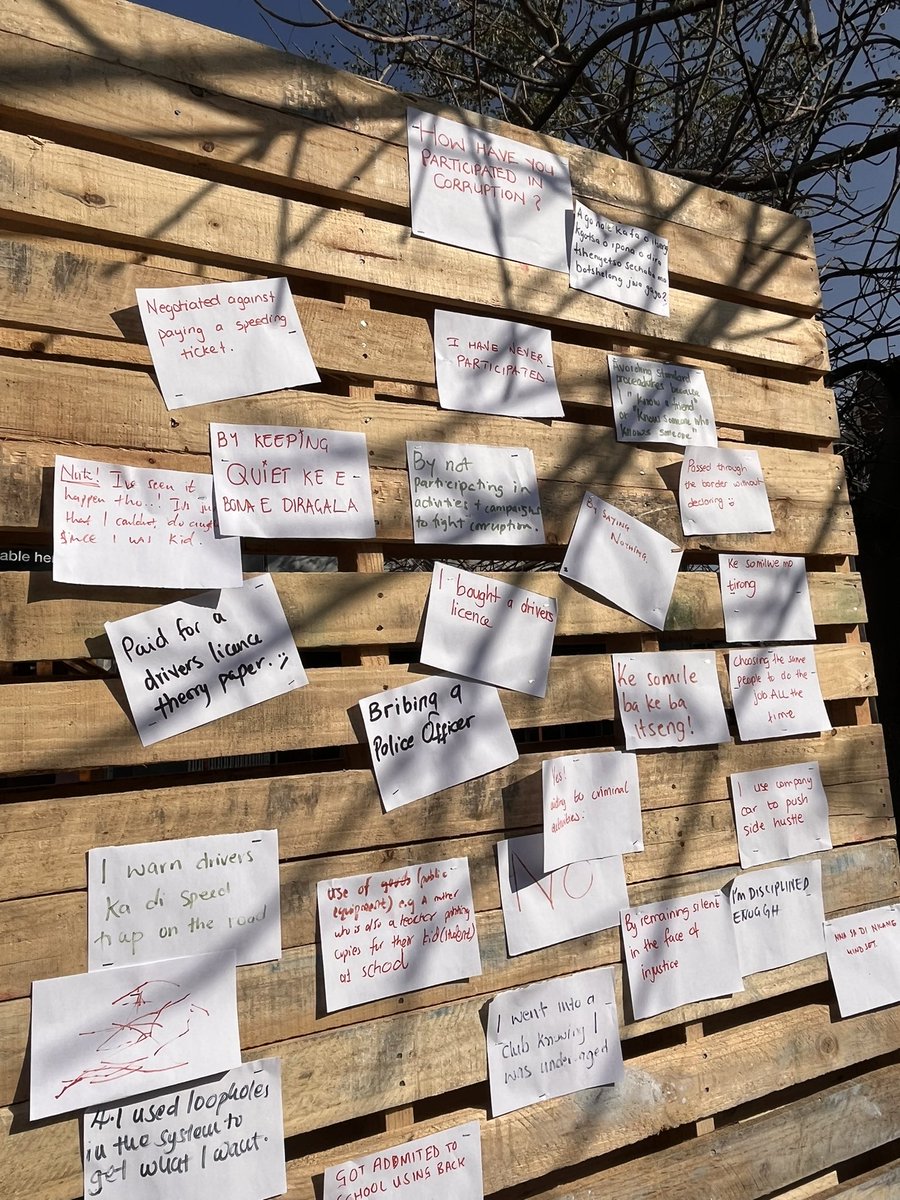 HOW HAVE YOU
PARTICIPATED IN
CORRUPTION ?
A go nale kafa o
kgotsa o ipona o dira
tshenyetso sechaba mo
botshelong jwa gago?
Negotiated against
paying a speeding
ticket.
I HAVE NEVER
PARTICIPATED.
Avoiding standard
procedures because
"I know a friend"
or "Knows someone who
knows someone"
BY KEEPING
QUIET KE E
BONA E DIRAGALA
By not
participating in
activities + campaigns
to fight corruption.
Passed through the
border without
declaring
Nuh! I've seen it
happen tho..! It's just
that I couldn't do
since I was kid.
By SAYING
NOTHING.
Ke somilwe mo
tirong
able he
I bought a drivers
licence
Paid for a
drivers licence
therry paper.
Ke somile
ba ke ba
itseng!
Choosing the same
people to do the
job ALL the
time
Bribing a
Police Officer
Yes!
aiding to criminal
activities.
I use company
car to push
side hustle
I warn drivers
ka di speed
trap on the road
use of goods (public
equipment) e.g A mother
who is also a teacher printing
copies for their kid (student)
at school
NO
By remaining silent
in the face of
injustice
I'M DISCIPLINED
ENOGGH
NNA SA DI NKANG
MINDSET.
I went into a
club knowing I
was underaged
A. I used loopholes
in the system to
get what I want.
GOT ADDMITED TO
SCHOOL USING BACK